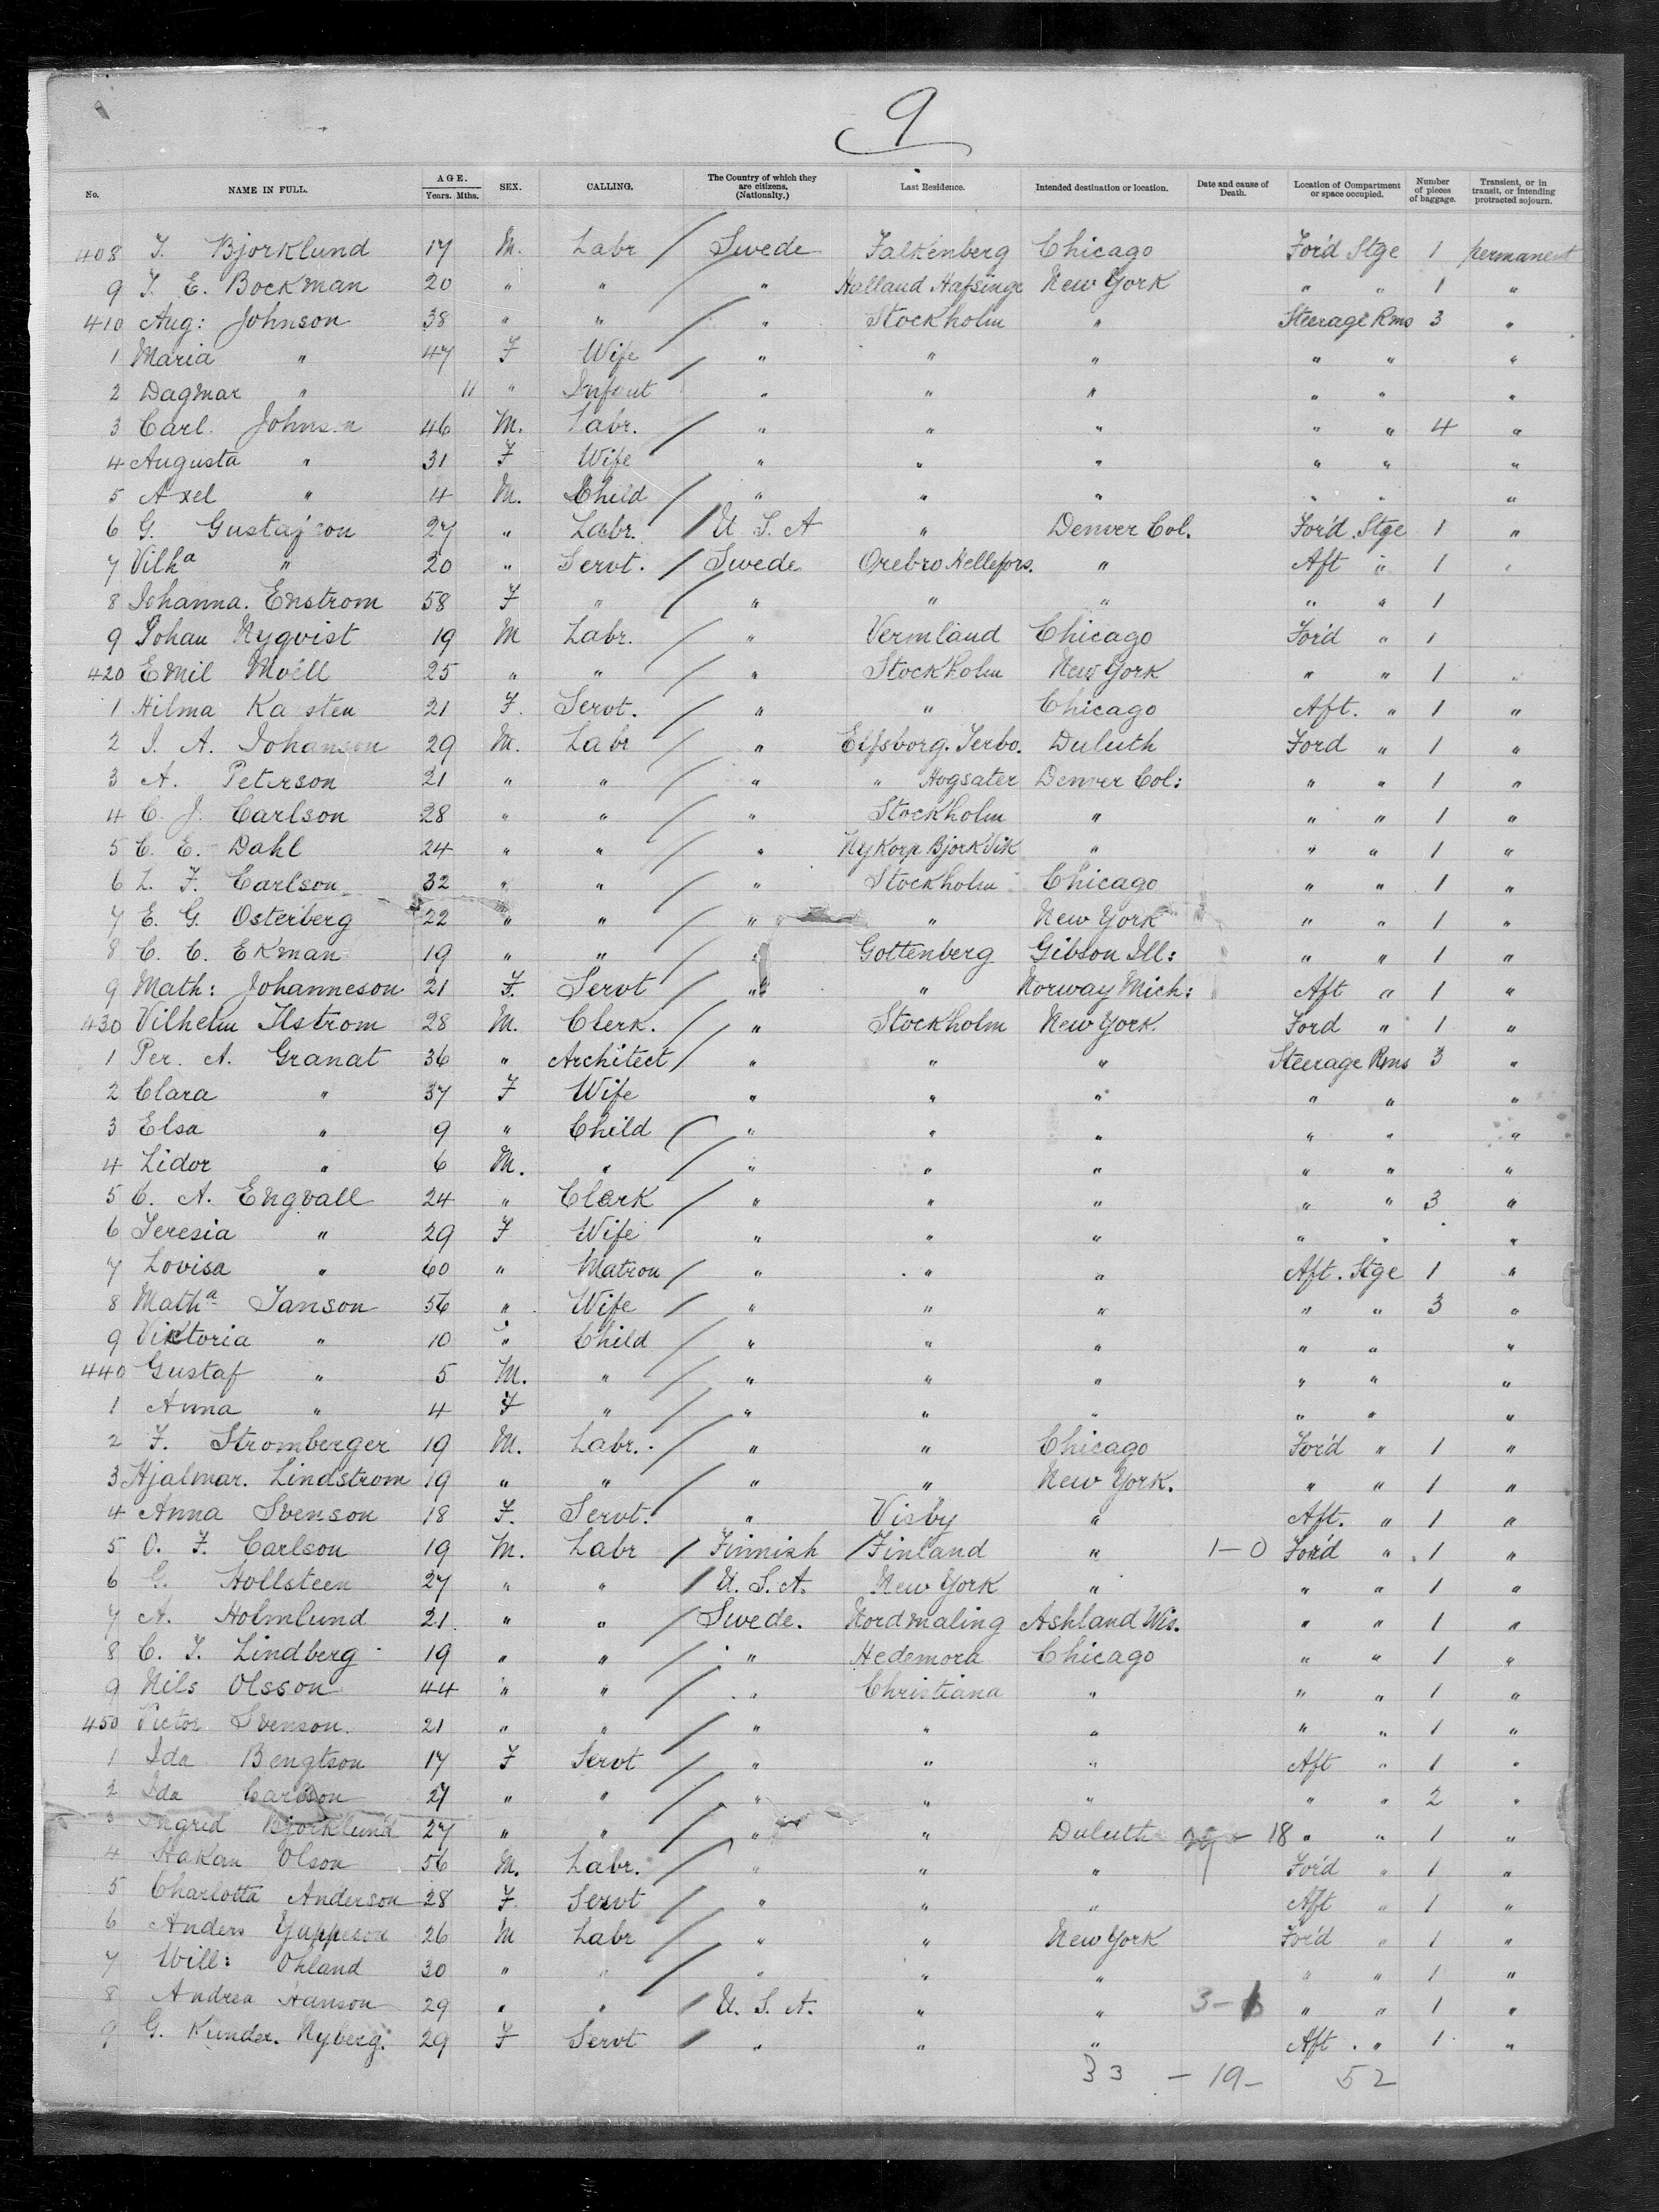 9
No. NAME IN FULL. AGE. Years. Mths. SEX. CALLING. The Country of which they are citizens. (Nationalty.) Last Residence. Intended destination or location. Date and cause of Death. Location of Compartment or space occupied. Number of pieces of baggage. Transient, or in transit, or intending protracted sojourn.
408 J. Bjorklund 17 M. Labr / Swede Falkenberg Chicago For'd Stge 1 permanent
9 J. E. Bockman 20 " " / " Halland Hafsinge New York " " 1 "
410 Aug: Johnson 38 " " / " Stockholm " Steerage Rms 3 "
1 Maria " 47 F Wife / " " " " " "
2 Dagmar " 11 " Infant " " " " " "
3 Carl. Johnson 46 M. Labr. / " " " " " 4 "
4 Augusta " 31 F Wife " " " " " "
5 Axel " 4 M. Child / " " " " " "
6 G. Gustafson 27 " Labr. / U. S. A " Denver Col. For'd. Stge 1 "
7 Vilha " 20 " Servt. / Swede Orebro Hellefors. " Aft " 1 "
8 Johanna. Enstrom 58 F " / " " " " " 1
9 Johan Nyqvist 19 M Labr. / " Vermland Chicago For'd " 1
420 Emil Moëll 25 " " / " Stockholm New York " " 1 "
1 Hilma Karsten 21 F. Servt. / " " Chicago Aft. " 1 "
2 J. A. Johanson 29 M. Labr / " Elfsborg. Terbo. Duluth Ford " 1 "
3 A. Peterson 21 " " / " " Hogsater Denver Col: " " 1 "
4 C. J. Carlson 28 " " / " Stockholm " " " 1 "
5 C. E. Dahl 24 " " / " Nykorp Bjorkvik " " " 1 "
6 L. F. Carlson 32 " " / " Stockholm Chicago " " 1 "
7 E. G. Osterberg 22 " " / " " New York " " 1 "
8 C. C. Ekman 19 " " / " Gottenberg Gibson Ill: " " 1 "
9 Math: Johanneson 21 F. Servt / " " Norway Mich: Aft " 1 "
430 Vilhelm Ilstrom 28 M. Clerk. / " Stockholm New York. Ford " 1 "
1 Per. A. Granat 36 " Architect / " " " Steerage Rms 3 "
2 Clara " 37 F Wife " " " " " "
3 Elsa " 9 " Child / " " " " " "
4 Lidor " 6 M. " / " " " " " "
5 C. A. Engvall 24 " Clerk / " " " " " 3 "
6 Teresia " 29 F Wife " " " " " "
7 Lovisa " 60 " Matron / " " " Aft. Stge 1 "
8 Matha Janson 56 " Wife / " " " " " 3 "
9 Viktoria " 10 " Child / " " " " " "
440 Gustaf " 5 M. " / " " " " " "
1 Anna " 4 F " / " " " " " "
2 F. Stromberger 19 M. Labr. / " " Chicago For'd " 1 "
3 Hjalmar. Lindstrom 19 " " / " " New York. " " 1 "
4 Anna Svenson 18 F. Servt. " Visby " Aft. " 1 "
5 O. F. Carlson 19 M. Labr / Finnish / Finland " 1-0 For'd " 1 "
6 G. Hollsteen 27 " " / U. S. A. New York " " " 1 "
7 A. Holmlund 21 " " / Swede. Nordmaling Ashland Wis. " " 1 "
8 C. J. Lindberg 19 " " / " Hedemora Chicago " " 1 "
9 Nils Olsson 44 " " / " Christiana " " " 1 "
450 Victor Svenson. 21 " " / " " " " " 1 "
1 Ida Bengtson 17 F Servt / " " " Aft " 1 "
2 Ida Carlson 27 " " / " " " " " 2 "
3 Ingrid Bjorklund 27 " " / " " Duluth 18 " " 1 "
4 Hakan Olson 56 M. Labr. / " " " For'd " 1 "
5 Charlotta Anderson 28 F Servt / " " " Aft " 1 "
6 Anders Yuppeson 26 M Labr / " " New York For'd " 1 "
7 Will: Ohland 30 " " / " " " " " 1 "
8 Andrea Hanson 29 " " / U. S. A. " " 3- " " 1 "
9 G. Kunder. Nyberg. 29 F Servt / " " " Aft. " 1 "
33 - 19 - 52